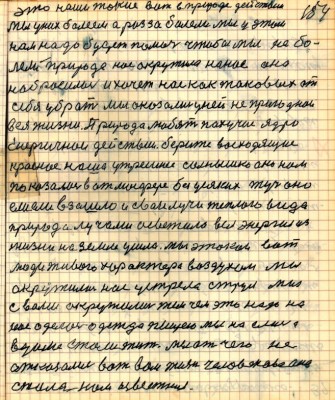 154
это наши такие вот в природе действия
мы у них болеем а раз заболели мы у этом
нам надо будет помоч чтобы мы не бо-
лели природа нас окружила на нас она
набросилась и хочет нас как таковых от
себя убрать мы оказались у ней не пригодной
вся жизни. Природа любят пахучие ядро
энергичное действие. берите восходящие
красное наша утреннее солнышко оно нам
показалось в атмосфере без всяких туч оно
взошло и своим лучи теплого вида
природа лучами осветило вся энергия из
жизни на земле ушла. мы этокои вот
люди живого характера воздухом мы
окружились нас с утра струя мы
с вами окружились тем чем это надо на
нас одежда мы на
стали жить. мы от чего не
отказались вот вам жизнь человекова она
стала нам известная.